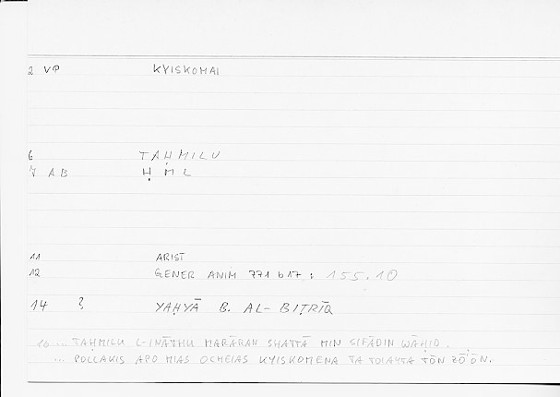 2 VP KYISKOMAI
6 TAḤMILU
7 AB ḤML
11 ARIST
12 GENER ANIM 771 b17 : 155.10
14 ? YAḤYĀ B. AL-BIṬRĪQ
10 ... TAḤMILU L-INĀTHU MARĀRAN SHATTĀ MIN SIFĀDIN WĀḤID.
... POLLAKIS APO MIAS OCHEIAS KYISKOMENA TA TOIAYTA TŌN ZỌ̄ŌN.